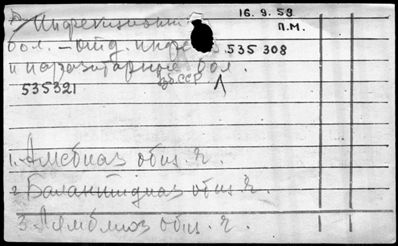 Инфекционн. 16.9.59
П.М.
бол. – отд. инфекц. 535 308
и паразитарные бол.
535321
1. Амебиаз общ. ч.
2 Балантидиаз общ. ч.
3. Лямблиоз общ. ч.